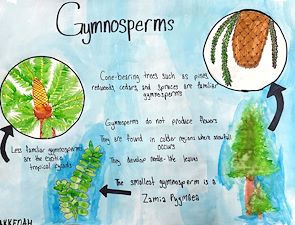 Gymnosperms
Cone-bearing trees such as pines,
redwoods, cedars, and spruces are familiar
gymnosperms
Gymnosperms do not produce flowers
They are found in colder regions where snowfall
occurs
They develop needle-like leaves
Less familiar gymnosperms
are the exotic
tropical cycads
The smallest gymnosperm is a
Zamia Pygmaea